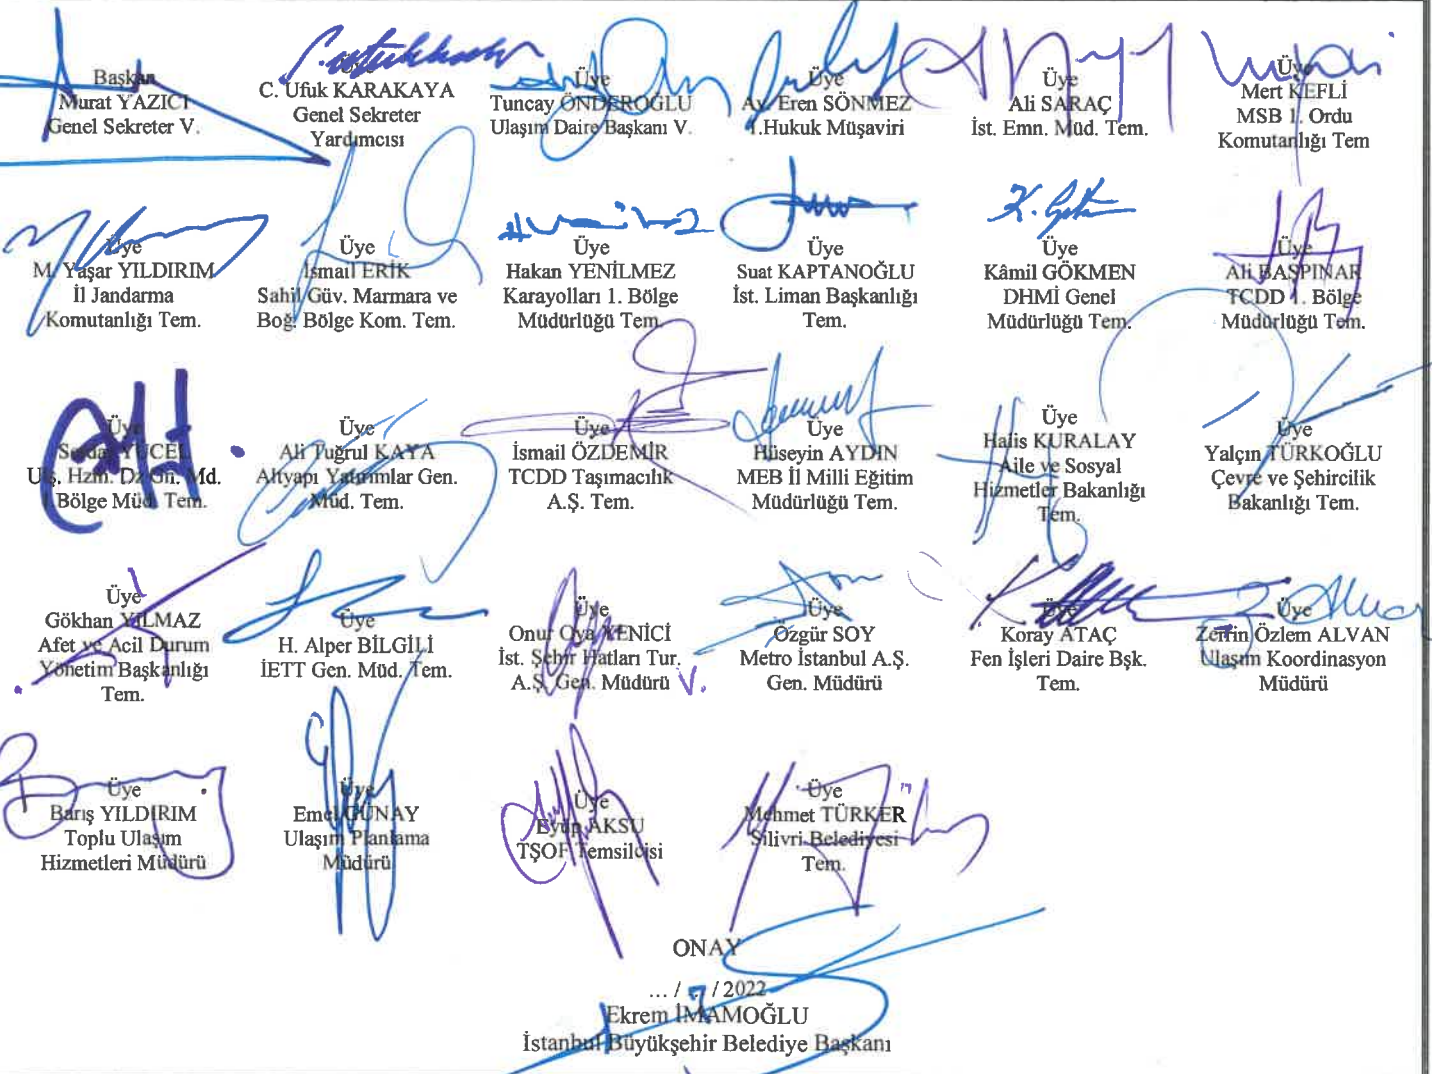 Başkan
Murat YAZICI
Genel Sekreter V.
Üye
C. Ufuk KARAKAYA
Genel Sekreter
Yardımcısı
Üye
Tuncay ÖNDEROĞLU
Ulaşım Daire Başkanı V.
Üye
Av. Eren SÖNMEZ
1.Hukuk Müşaviri
Üye
Ali SARAÇ
İst. Emn. Müd. Tem.
Üye
Mert KEFLİ
MSB 1. Ordu
Komutanlığı Tem
Üye
M. Yaşar YILDIRIM
İl Jandarma
Komutanlığı Tem.
Üye
İsmail ERİK
Sahil Güv. Marmara ve
Boğ. Bölge Kom. Tem.
Üye
Hakan YENİLMEZ
Karayolları 1. Bölge
Müdürlüğü Tem.
Üye
Suat KAPTANOĞLU
İst. Liman Başkanlığı
Tem.
Üye
Kâmil GÖKMEN
DHMİ Genel
Müdürlüğü Tem.
Üye
Ali BAŞPINAR
TCDD 1. Bölge
Müdürlüğü Tem.
Üye
YÜCEL
Ulş. Hzm. Dz Gn. Md.
Bölge Müd. Tem.
Üye
Ali Tuğrul KAYA
Altyapı Yatırımlar Gen.
Müd. Tem.
Üye
İsmail ÖZDEMİR
TCDD Taşımacılık
A.Ş. Tem.
Üye
Hüseyin AYDIN
MEB İl Milli Eğitim
Müdürlüğü Tem.
Üye
Halis KURALAY
Aile ve Sosyal
Hizmetler Bakanlığı
Tem.
Üye
Yalçın TÜRKOĞLU
Çevre ve Şehircilik
Bakanlığı Tem.
Üye
Gökhan YILMAZ
Afet ve Acil Durum
Yönetim Başkanlığı
Tem.
Üye
H. Alper BİLGİLİ
İETT Gen. Müd. Tem.
Üye
Onur Oya YENİCİ
İst. Şehir Hatları Tur.
A.Ş. Gen. Müdürü V.
Üye
Özgür SOY
Metro İstanbul A.Ş.
Gen. Müdürü
Üye
Koray ATAÇ
Fen İşleri Daire Bşk.
Tem.
Üye
Zerrin Özlem ALVAN
Ulaşım Koordinasyon
Müdürü
Üye
Barış YILDIRIM
Toplu Ulaşım
Hizmetleri Müdürü
Üye
Emel GÜNAY
Ulaşım Planlama
Müdürü
Üye
Eyüp AKSU
TŞOF Temsilcisi
Üye
Mehmet TÜRKER
Silivri Belediyesi
Tem.
ONAY
... / ... / 2022
Ekrem İMAMOĞLU
İstanbul Büyükşehir Belediye Başkanı